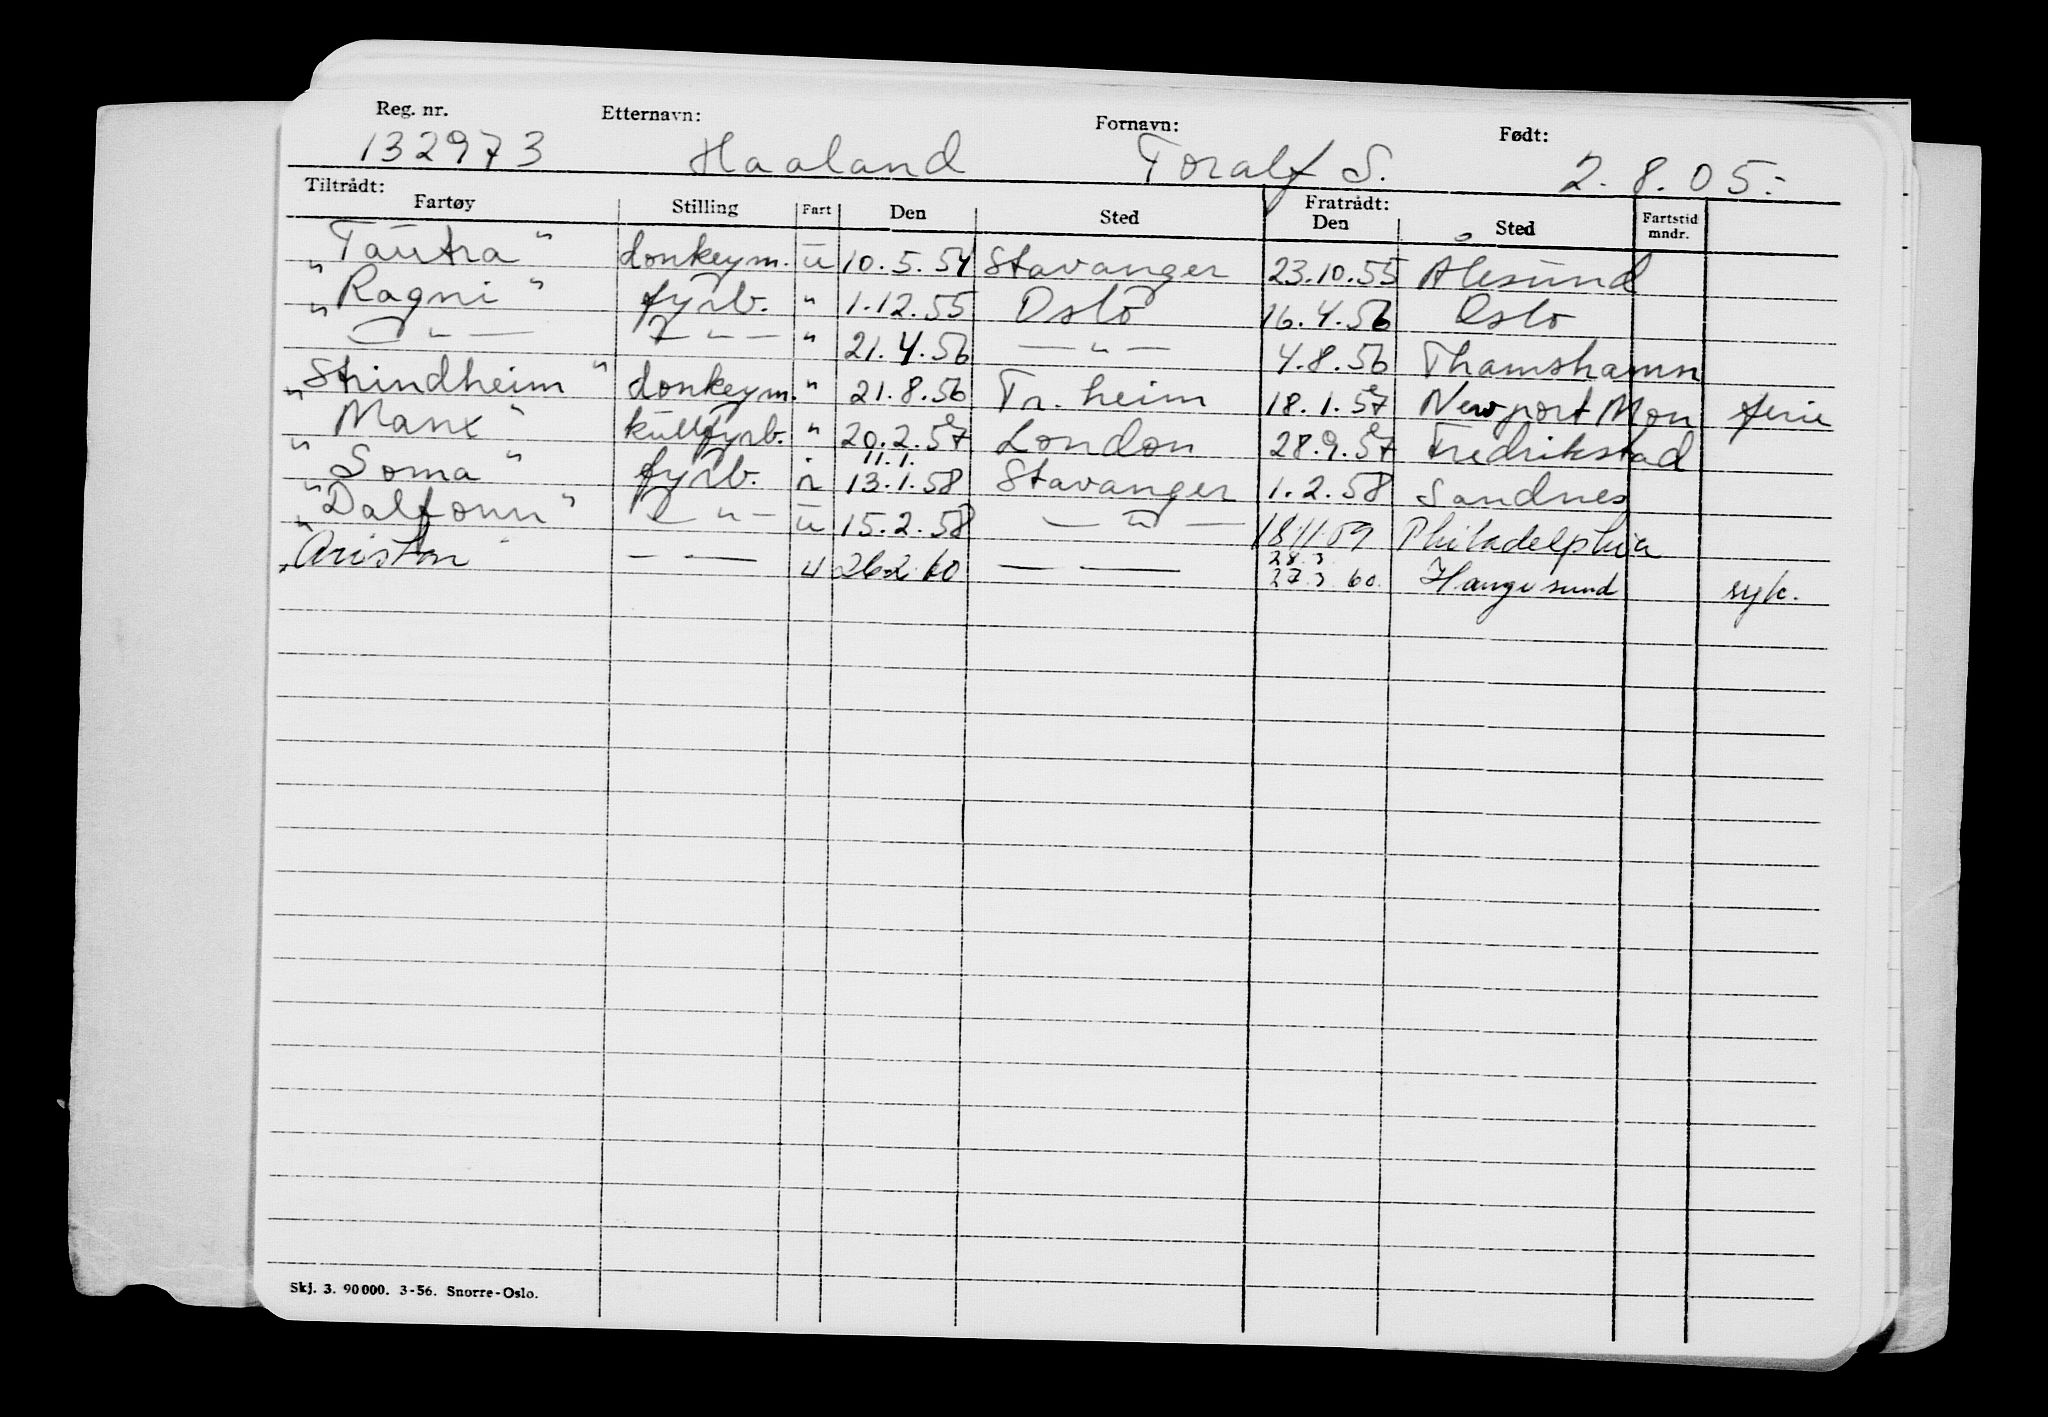 Reg. nr. Etternavn: Fornavn: Født:
132973 Haaland Toralf S. 2.8.05.-
Tiltrådt: Fratrådt:
Fartøy Stilling Fart Den Sted Den Sted Fartstid mndr.
"Tautra" donkeym. u 10.5.54 Stavanger 23.10.55 Ålesund
"Ragni" fyrb. " 1.12.55 Oslo 16.4.56 Oslo
" — " — — " — " 21.4.56 — " — 4.8.56 Thamshamn
Strindheim" donkeym. " 21.8.56 Tr.heim 18.1.57 Newport Mon ferie
"Manx" kullfyrb. " 20.2.57 London 28.9.57 Fredrikstad
11.1.
"Soma" fyrb. i 13.1.58 Stavanger 1.2.58 Sandnes
"Dalfonn" — " — u 15.2.58 — " — 18/11 59 Philadelphia
28.3.
"Ariston" — — u 26.2.60 — — 27.3.60. Haugesund syk.
Skj. 3. 90000. 3-56. Snorre-Oslo.